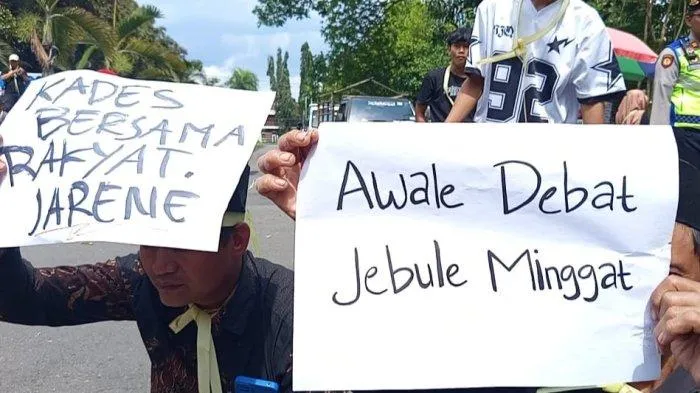 KADES
BERSAMA
RAKYAT.
JARENE
Awale Debat
Jebule Minggat
92